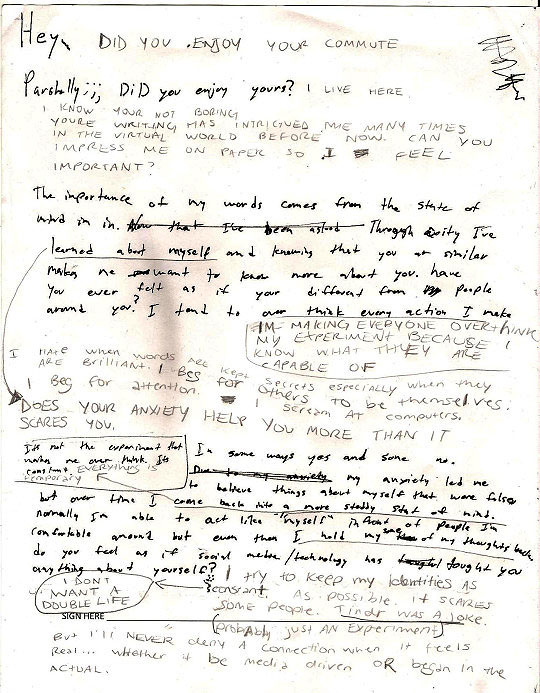 Hey, DID YOU ENJOY YOUR COMMUTE
Parshally;;; DiD you enjoy yours? I LIVE HERE.
I KNOW YOUR NOT BORING
YOURE WRITING HAS INTRIGUED ME MANY TIMES
IN THE VIRTUAL WORLD BEFORE NOW. CAN YOU
IMPRESS ME ON PAPER SO I FEEL
IMPORTANT?
The importance of my words comes from the state of
mind in in. Now that I've been asked Through I've
learned about myself and knowing that you are similar
makes me want to know more about you. have
you ever felt as if your different from people
around you? I tend to over think every action I make
IM MAKING EVERYONE OVERTHINK
MY EXPERIMENT BECAUSE I
KNOW WHAT THEY ARE
CAPABLE OF
I HATE WHEN WORDS ARE KEPT SECRETS ESPECIALLY WHEN THEY
ARE BRILLIANT. I BEG FOR OTHERS TO BE THEMSELVES.
I BEG FOR ATTENTION. I SCREAM AT COMPUTERS.
DOES YOUR ANXIETY HELP YOU MORE THAN IT
SCARES YOU.
Its not the experiment that
makes me over think. Its
constant EVERYTHING IS
temporary
In some ways yes and some no.
Due to my anxiety my anxiety led me
to believe things about myself that were false
but over time I come back into a more steddy state of mind.
normally Im able to act like "myself" in front of people I'm
comfortable around but even then I hold some of my thoughts back
do you feel as if social media/technology has taught you
anything about yourself? I try to keep my Identities AS
constant AS possible. it SCARES
SOME PEOPLE. Tindr WAS A JOKE.
(probAbly just AN Experiment)
I DONT
WANT A
DOUBLE LIFE
SIGN HERE
But I'll NEVER deny A connection when it feels
Real... whether it be media driven OR began in the
ACTUAL.